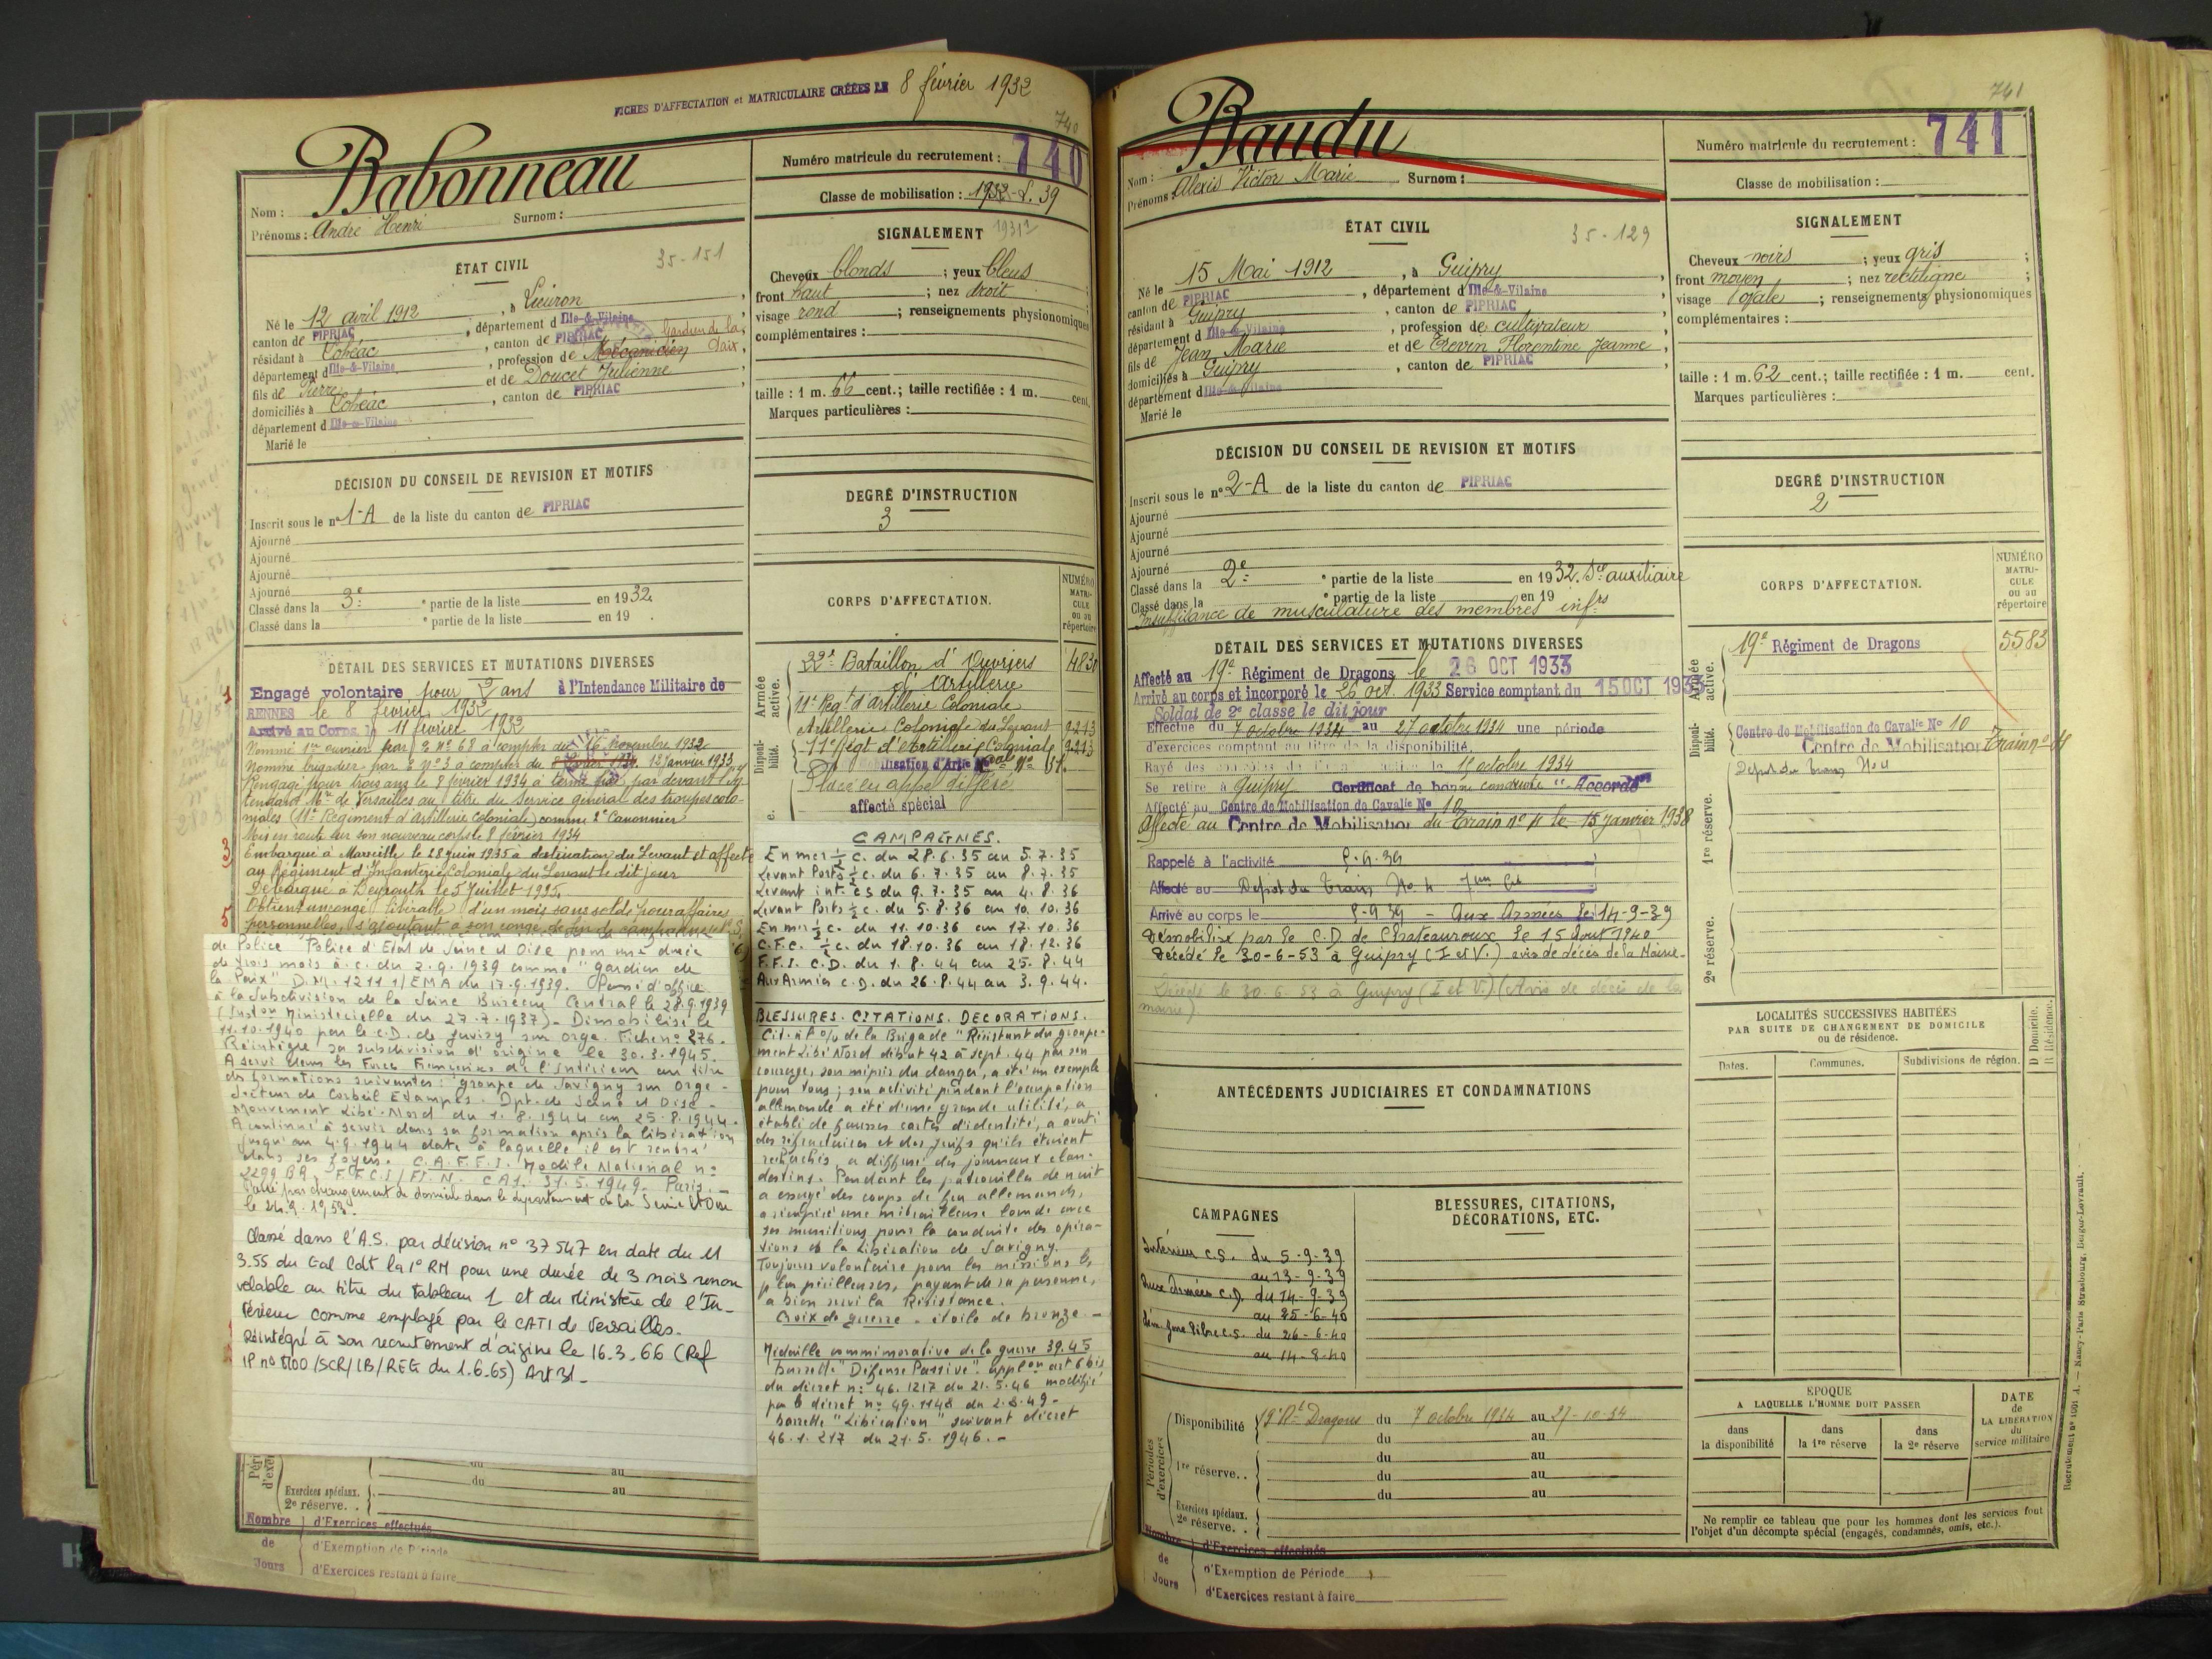 FICHES D'AFFECTATION et MATRICULAIRE CRÉÉES LE 8 février 1932
740
Babonneau
Nom :
Surnom :
Prénoms : André Henri
Numéro matricule du recrutement : 740
Classe de mobilisation : 1932
ÉTAT CIVIL
35-151
Né le 12 avril 1912, à Lieuron,
canton de PIPRIAC, département d Ille-&-Vilaine
résidant à Lohéac, canton de PIPRIAC
département d Ille-&-Vilaine, profession de Mécanicien Gardien de la Paix,
fils de Pierre et de Doucet Julienne
domiciliés à Lohéac, canton de PIPRIAC
département d Ille-&-Vilaine
Marié le
SIGNALEMENT
Cheveux blonds ; yeux bleus
front haut ; nez droit
visage rond ; renseignements physionomiques
complémentaires :
taille : 1 m. 66 cent.; taille rectifiée : 1 m. cent.
Marques particulières :
DÉCISION DU CONSEIL DE REVISION ET MOTIFS
Inscrit sous le n° 1-A de la liste du canton de PIPRIAC
Ajourné
Ajourné
Ajourné
Ajourné
Classé dans la 3e partie de la liste en 1932.
Classé dans la partie de la liste en 19 .
DEGRÉ D'INSTRUCTION
3
CORPS D'AFFECTATION.
NUMÉRO MATRI-CULE ou au répertoire
Armée active.
22e Bataillon d'Ouvriers
d'Artillerie
11e Régt d'Artillerie Coloniale
Artillerie Coloniale du Levant 9213
Disponi-bilité.
11e Régt d'Artillerie Coloniale 9213
Placé en appel différé
affecté spécial
DÉTAIL DES SERVICES ET MUTATIONS DIVERSES
Engagé volontaire pour 2 ans à l'Intendance Militaire de
RENNES le 8 février 1932
Arrivé au Corps le 11 février 1932
Nommé 1er ouvrier par O. N° 68 à compter du 16 Novembre 1932
Nommé brigadier par O. N° 3 à compter du 12 janvier 1933
Rengagé pour trois ans le 8 février 1934 à par devant l'in-
tendant Mre de Versailles au titre du Service général des troupes colo-
niales (11e Régiment d'artillerie coloniale) comme 2e Canonnier
Mis en route sur son nouveau corps le 8 février 1934
3 Embarqué à Marseille le 28 juin 1935 à destination du Levant et affecté
au Régiment d'Infanterie Coloniale du Levant le dit jour
Débarqué à Beyrouth le 5 Juillet 1935.
5 Obtient un congé libérable d'un mois sans solde pour affaires
personnelles, s'ajoutant à son congé de fin de campagne
de Police Police d'Etat de Seine et Oise pour une durée
de trois mois à c. du 2.9.1939 comme "gardien de
la Paix" D.M. 1211 1/EMA du 17.9.1939. d'office
à la Subdivision de la Seine Bureau Central le 28.9.1939
(Inston Ministérielle du 27.7.1937) - Démobilisé le
11.10.1940 par le C.D. de Juvisy sur Orge. Fiche n° 276.
Réintègre sa subdivision d'origine le 30.3.1945.
A servi dans les Forces Françaises de l'Intérieur au titre
des formations suivantes : "groupe de Savigny sur Orge -
Secteur de Corbeil Etampes. Dpt. de Seine et Oise -
Mouvement Libé-Nord du 1.8.1944 au 25.8.1944.
A continué à servir dans sa formation après la libération
jusqu'au 4.9.1944 date à laquelle il est rendu
dans ses foyers. C.A.F.F.I. Modèle National n°
2299 BR. F.F.C.I/FI.N. CA1. 31.5.1949. Paris. -
Passé par changement de domicile dans le département de la Seine et Oise
le 24.9.195
Classé dans l'A.S. par décision n° 37547 en date du 11
3.55 du Gal Cdt la 1° RM pour une durée de 3 mois renou
velable au titre du Tableau 1 et du Ministère de l'In-
térieur comme employé par le CATI de Versailles.
Réintégré à son recrutement d'origine le 16.3.66 (Ref
IP n° 1100/SCR/IB/REG du 1.6.65) Art 31.-
CAMPAGNES.
En mer ½ c. du 28.6.35 au 5.7.35
Levant Ports ½ c. du 6.7.35 au 8.7.35
Levant int. cs du 9.7.35 au 4.8.36
Levant Ports ½ c. du 5.8.36 au 10.10.36
En mer ½ c. du 11.10.36 au 17.10.36
C.F.C. ½ c. du 18.10.36 au 18.12.36
F.F.I. C.D. du 1.8.44 au 25.8.44
Aux Armées C.D. du 26.8.44 au 3.9.44.
BLESSURES. CITATIONS. DECORATIONS.
Cit. à l'o/ de la Brigade "Résistant du groupe-
ment Libé Nord début 42 à sept. 44 par son
courage, son mépris du danger, a été un exemple
pour tous ; son activité pendant l'occupation
allemande a été d'une grande utilité, a
établi de fausses cartes d'identité, a averti
des réfractaires et des juifs qu'ils étaient
recherchés, a diffusé des journaux clan-
destins. Pendant les patrouilles de nuit
a essuyé des coups de feu allemands,
a récupéré une mitrailleuse lourde avec
ses munitions pour la conduite des opéra-
tions de la Libération de Savigny.
Toujours volontaire pour les missions les
plus périlleuses, payant de sa personne,
a bien servi la Résistance.
Croix de guerre - étoile de bronze. -
Médaille commémorative de la guerre 39.45
barrette "Défense Passive". applon art 6 bis
du décret n° 46.1217 du 21.5.46 modifié
par le décret n° 49.1148 du 2.8.49 -
barrette "Libération" suivant décret
46.1.217 du 21.5.1946. -
du au
du au
Exercices spéciaux.
2e réserve. .
Nombre de Jours
d'Exercices effectués
d'Exemption de Période
d'Exercices restant à faire
741
Baudu
Nom :
Surnom :
Prénoms : Alexis Victor Marie
Numéro matricule du recrutement : 741
Classe de mobilisation :
ÉTAT CIVIL
35-129
Né le 15 Mai 1912, à Guipry,
canton de PIPRIAC, département d Ille-&-Vilaine
résidant à Guipry, canton de PIPRIAC
département d Ille-&-Vilaine, profession de cultivateur
fils de Jean Marie et de Crevin Florentine Jeanne,
domiciliés à Guipry, canton de PIPRIAC
département d Ille-&-Vilaine
Marié le
SIGNALEMENT
Cheveux noirs ; yeux gris ;
front moyen ; nez rectiligne ;
visage ovale ; renseignements physionomiques
complémentaires :
taille : 1 m. 62 cent.; taille rectifiée : 1 m. cent.
Marques particulières :
DÉCISION DU CONSEIL DE REVISION ET MOTIFS
Inscrit sous le n° 2-A de la liste du canton de PIPRIAC
Ajourné
Ajourné
Ajourné
Ajourné
Classé dans la 2e partie de la liste en 1932. Sce auxiliaire
Classé dans la partie de la liste en 19
Insuffisance de musculature des membres infrs
DEGRÉ D'INSTRUCTION
2
CORPS D'AFFECTATION.
NUMÉRO MATRI-CULE ou au répertoire
Armée active.
19e Régiment de Dragons 5583
Disponi-bilité.
Centre de Mobilisation de Cavalie No 10
Centre de Mobilisation Train n° 4
Dépôt du Train No 4
1re réserve.
2e réserve.
DÉTAIL DES SERVICES ET MUTATIONS DIVERSES
Affecté au 19e Régiment de Dragons le 26 OCT 1933
Arrivé au corps et incorporé le 26 oct. 1933 Service comptant du 15 OCT 1933
Soldat de 2e classe le dit jour
Effectué du 7 octobre 1934 au 27 octobre 1934 une période
d'exercices comptant au titre de la disponibilité.
Rayé des contrôles de l'armée active le 15 octobre 1934
Se retire à Guipry Certificat de bonne conduite "Accordé"
Affecté au Centre de Mobilisation de Cavalie No 10
Affecté au Centre de Mobilisation du Train n° 4 le 15 janvier 1938
Rappelé à l'activité 5-9-39
Affecté au Dépôt du Train No 4
Arrivé au corps le 5-9-39 - Aux Armées le 14-9-39
Démobilisé par le C.D. de Chateauroux le 15 Août 1940
Décédé le 30-6-53 à Guipry (I et V.) avis de décès de la Mairie-
Décédé le 30.6.53 à Guipry (I et V.) (Avis de décès de la
mairie)
LOCALITÉS SUCCESSIVES HABITÉES
PAR SUITE DE CHANGEMENT DE DOMICILE
ou de résidence.
Dates.
Communes.
Subdivisions de région.
D Domicile.
R Résidence.
ANTÉCÉDENTS JUDICIAIRES ET CONDAMNATIONS
CAMPAGNES
Intérieur c.s. du 5-9-39
au 13-9-39
Aux Armées C.D. du 14-9-39
au 25-6-40
dém. zone libre c.s. du 26-6-40
au 14-8-40
BLESSURES, CITATIONS,
DÉCORATIONS, ETC.
Périodes d'exercices
Disponibilité 19e Rt Dragons du 7 octobre 1934 au 27-10-34
du au
1re réserve. . du au
du au
du au
Exercices spéciaux.
2e réserve. .
Nombre de Jours
d'Exercices effectués
d'Exemption de Période
d'Exercices restant à faire
EPOQUE
A LAQUELLE L'HOMME DOIT PASSER
dans la disponibilité
dans la 1re réserve
dans la 2e réserve
DATE de LA LIBÉRATION du service militaire
Ne remplir ce tableau que pour les hommes dont les services font
l'objet d'un décompte spécial (engagés, condamnés, omis, etc.).
Recrutement n° 1001 A. — Nancy-Paris-Strasbourg, Berger-Levrault.